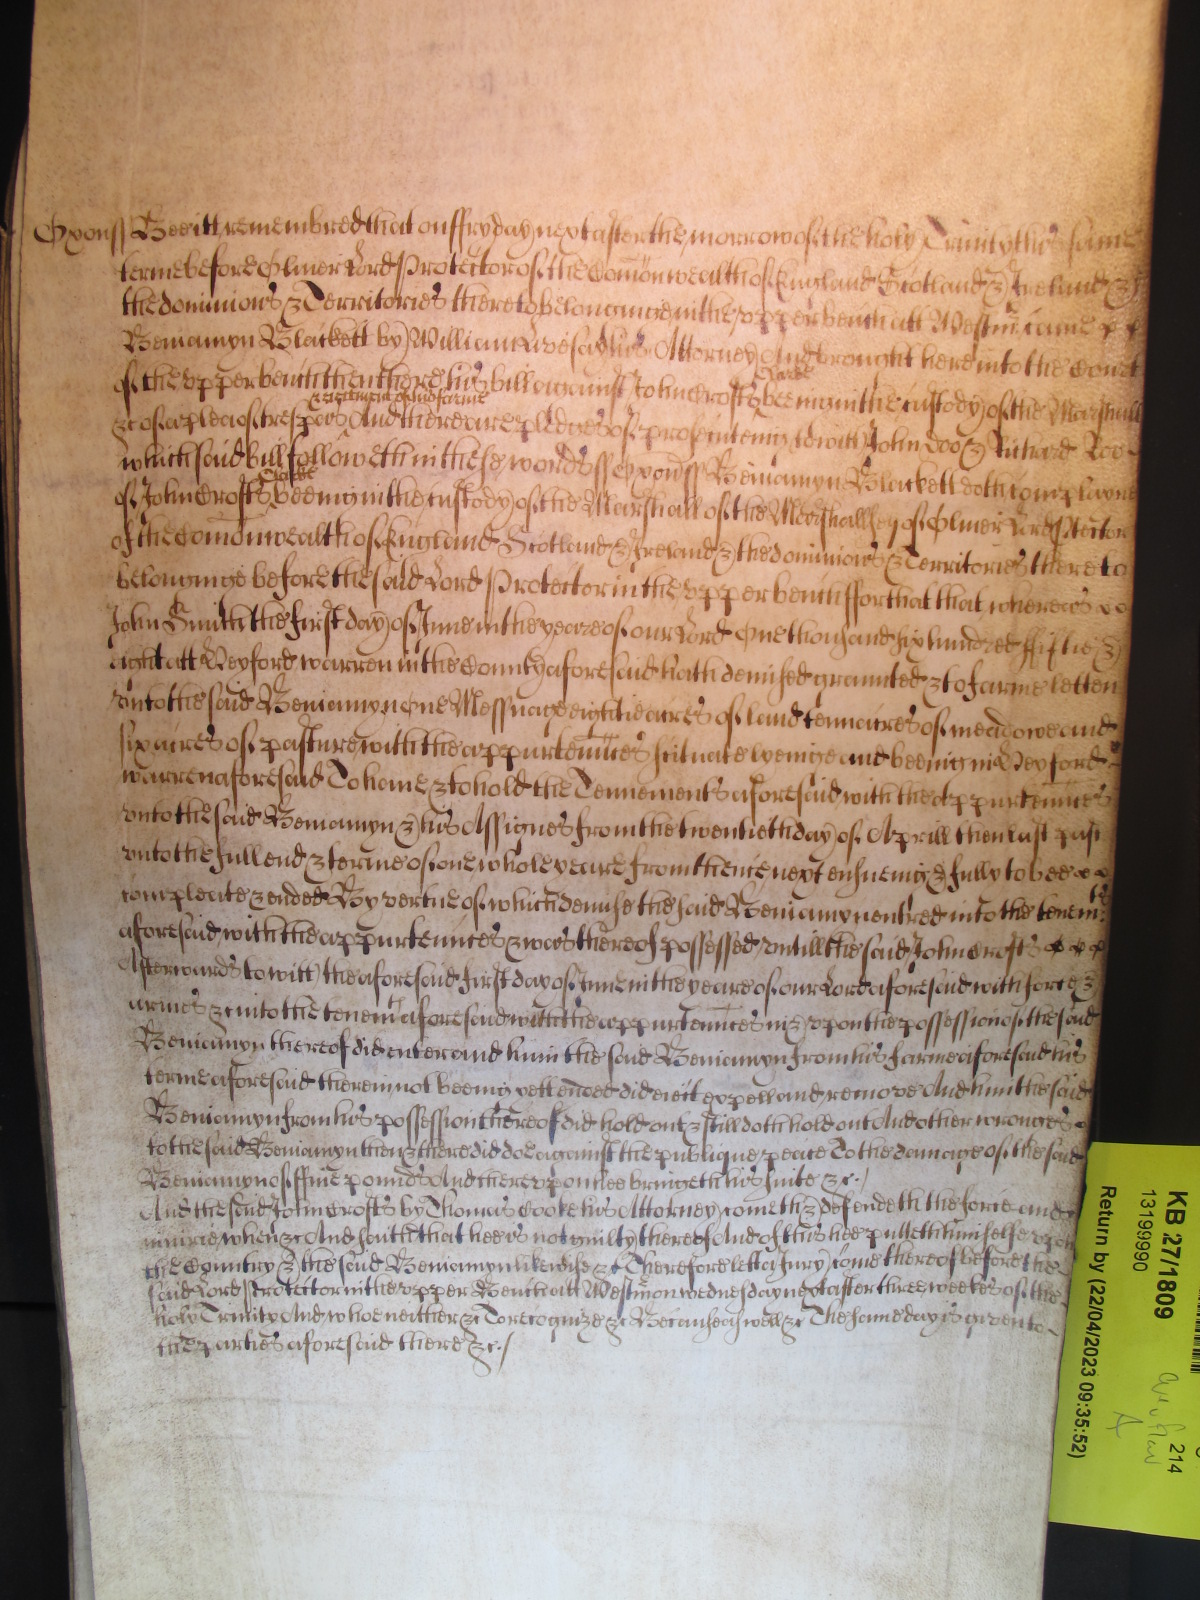 Oxon ss Bee itt remembred that on ffryday next after the morrow of the holy Trinity this same
terme before Oliver Lord Protector of the Comonwealth of England Scotland & Ireland &
the dominions & Territories thereto belonginge in the upper bench att Westm came
Beniamyn Blackett by William Lovesay his Attorney And brought here into the Court
Clarke
of the upper bench then there his bill against John Crofts beeing in the custody of the Marshall
& eiectment of his farme
&c of a plea of trespas And there are pledges of prosecuteing to witt John Doo & Richard Roo
which said bill followeth in these words ss Oxon ss Beniamyn Blackett doth complayne
Clarke
of John Crofts beeing in the custody of the Marshall of the Marshallsey of Oliver Lord Ptector
of the Comonwealth of England Scotland & Ireland & the dominions & Territories thereto
belonginge before the said Lord Protector in the upper bench ffor that that whereas
John Smith the first day of June in the yeare of our Lord One thousand six hundred fiftie &
eight att Heyford warren in the County aforesaid hath demised graunted & to farme letten
unto the said Beniamyn One Messuage eightie acres of land tenn acres of meadowe and
six acres of pasture with the appurtennces scituate lyeinge and beeing in Heyford
warren aforesaid To have & to hold the Tennements aforesaid with the appurtennces
unto the said Beniamyn & his Assignes from the twentieth day of Aprill then last past
unto the full end & terme of one whole yeare from thence next ensueing & fully to bee
compleate & ended By vertue of which demise the said Beniamyn entred into the tenemts
aforesaid with the appurtennces & was thereof possessed untill the said John Crofts
Afterwards to witt the aforesaid first day of June in the yeare of our Lord aforesaid with force &
armes &c into the tenemts aforesaid with the appurtennces in & upon the possession of the said
Beniamyn thereof did enter and him the said Beniamyn from his farme aforesaid his
terme aforesaid therein not beeing yett ended did eiect expell and remove And him the said
Beniamyn from his possession thereof did hold out & still doth hold out And other wronges
to the said Beniamyn then & there did doe against the publique peace To the damage of the said
Beniamyn of ffive pounds And thereupon hee bringeth his suite &c./
And the said John Crofts by Thomas Cooke his Attorney cometh & defendeth the force and
iniurie when &c And saith that hee is not guilty thereof And of this hee putteth himselfe upon
the Country & the said Beniamyn likewise &c Therefore lett a Jury come thereof before the
said Lord Protector in the upper Bench att Westm on wednesday next after three weekes of the
holy Trinity And who neither &c To recognize &c Because aswell &c The same day is given to
the parties aforesaid there &c./
KB 27/1809
13199990
214
Return by (22/04/2023 09:35:52)